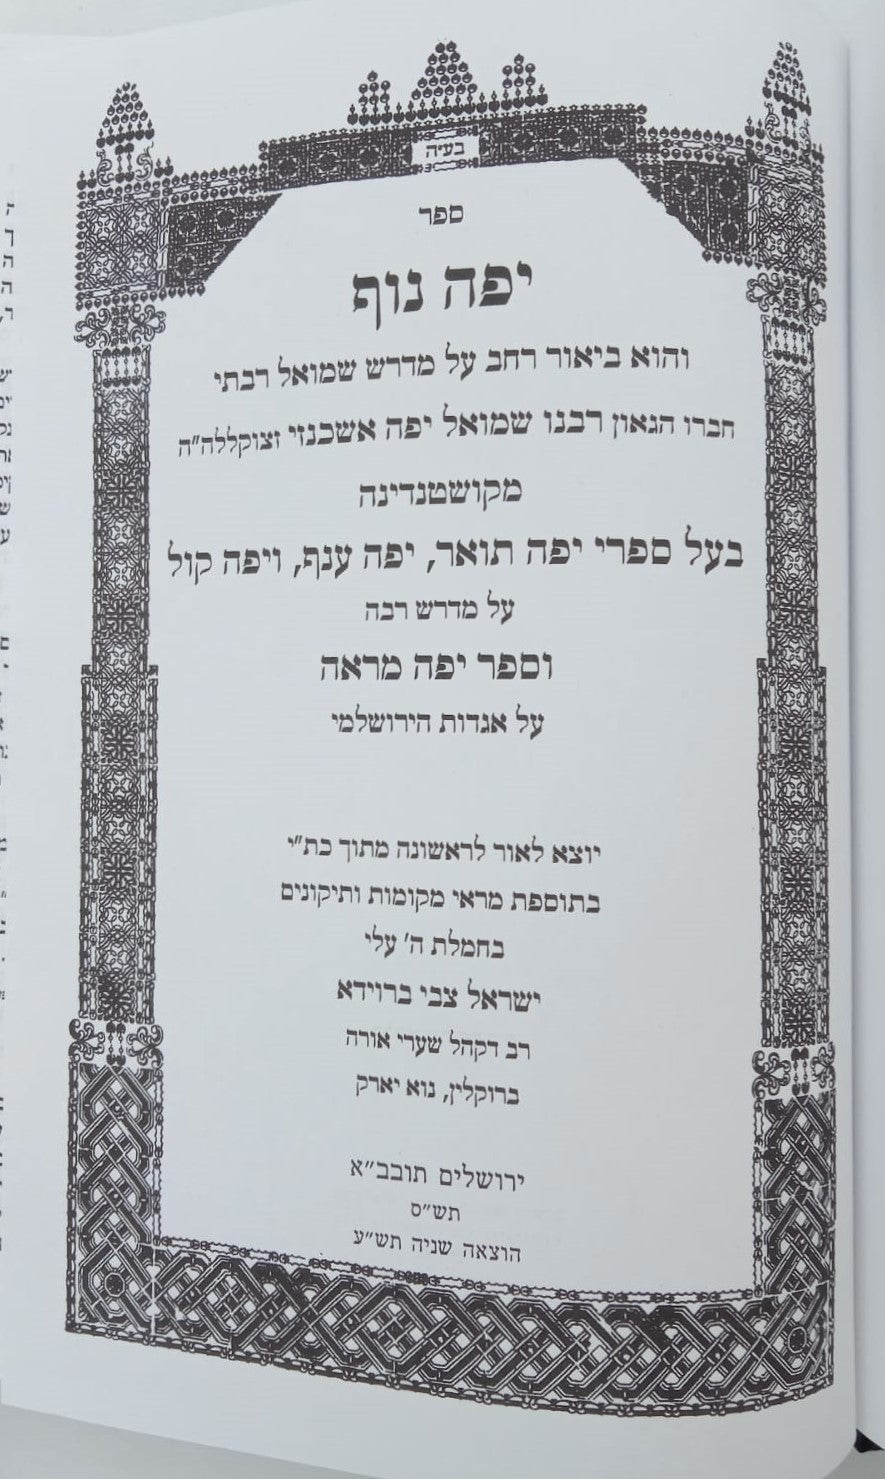 בעיה
ספר
יפה נוף
והוא ביאור רחב על מדרש שמואל רבתי
חברו הגאון רבנו שמואל יפה אשכנזי זצוקללה״ה
מקושטנדינה
בעל ספרי יפה תואר, יפה ענף, ויפה קול
על מדרש רבה
וספר יפה מראה
על אגדות הירושלמי
יוצא לאור לראשונה מתוך כת״י
בתוספת מראי מקומות ותיקונים
בחמלת ה׳ עלי
ישראל צבי ברוידא
רב דקהל שערי אורה
ברוקלין, נוא יארק
ירושלים תובב״א
תש״ס
הוצאה שניה תש״ע